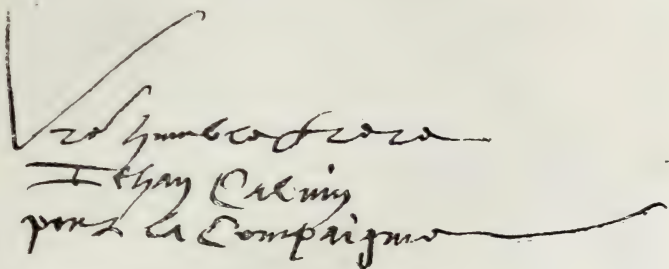 Vre humble frere
Iehan Caluin
pour la Compaignie